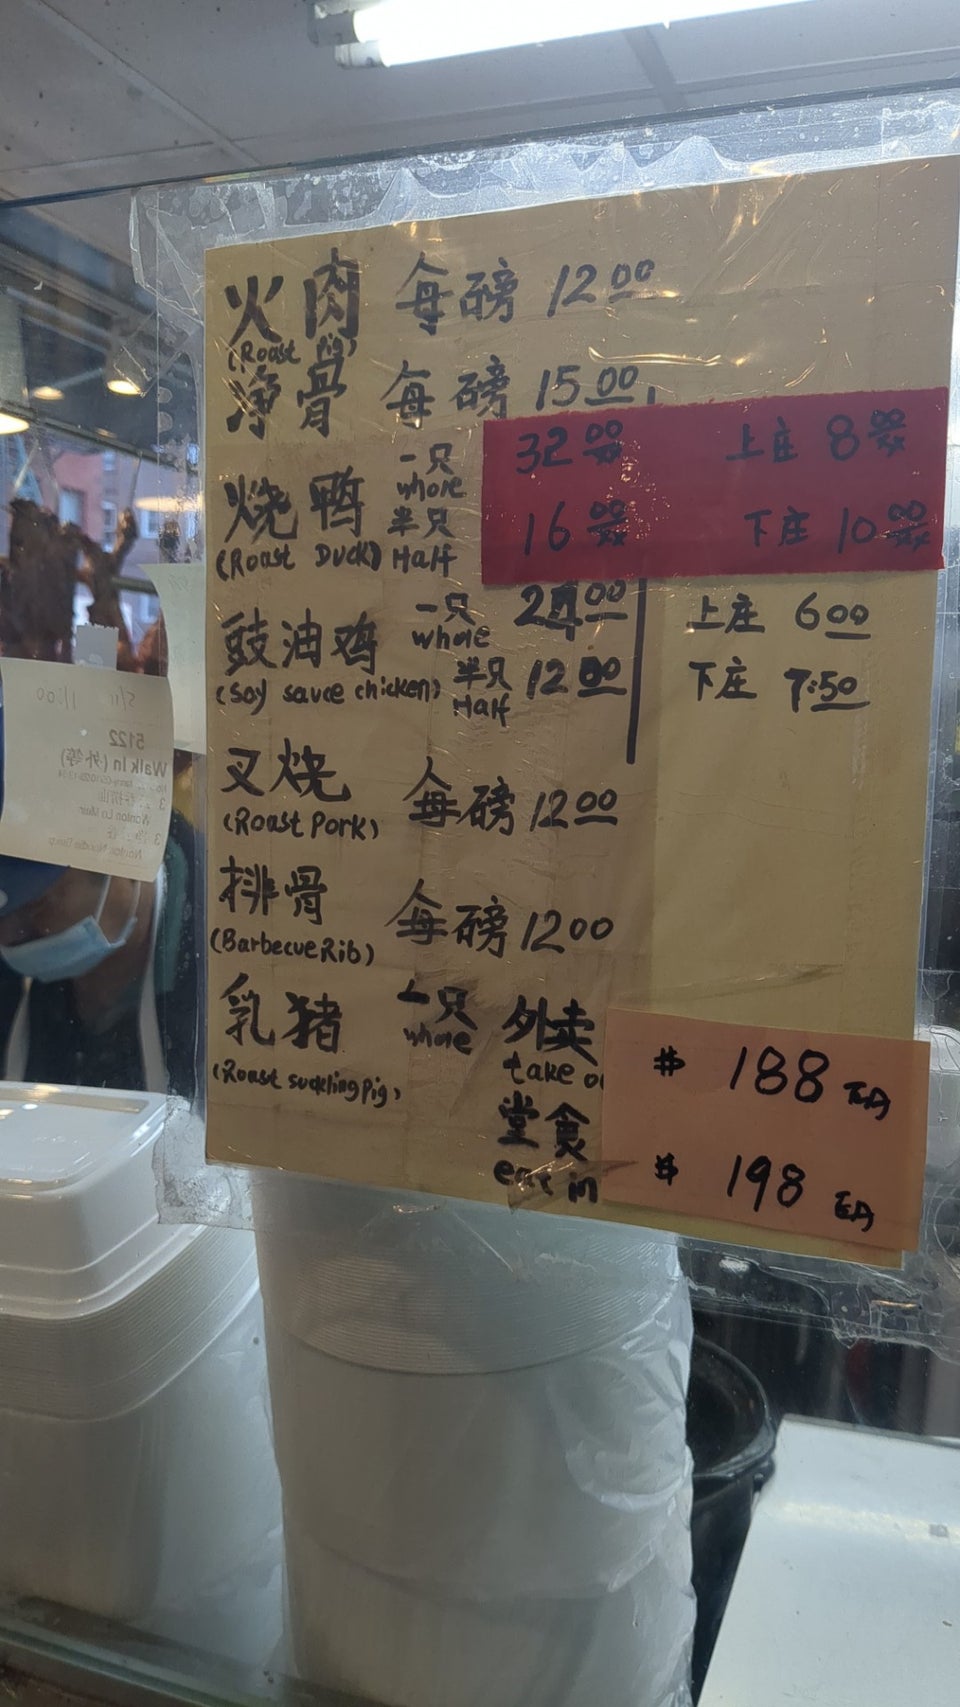 火肉 每磅 12.00
(Roast
净骨 每磅 15.00
烧鸭 一只 32.00 上庄 8.00
whole
半只 16.00 下庄 10.00
(Roast Duck) Half
豉油鸡 一只 24.00 上庄 6.00
whole
(Soy sauce chicken) 半只 12.00 下庄 7.50
Half
叉烧 每磅 12.00
(Roast Pork)
排骨 每磅 12.00
(Barbecue Rib)
乳猪 一只 外卖 $ 188 EA
whole
(Roast suckling pig) take
堂食 $ 198 EA
eat in
5/11 11:00
5122
Walk In (外等)
3
Wonton Lo Mein
3